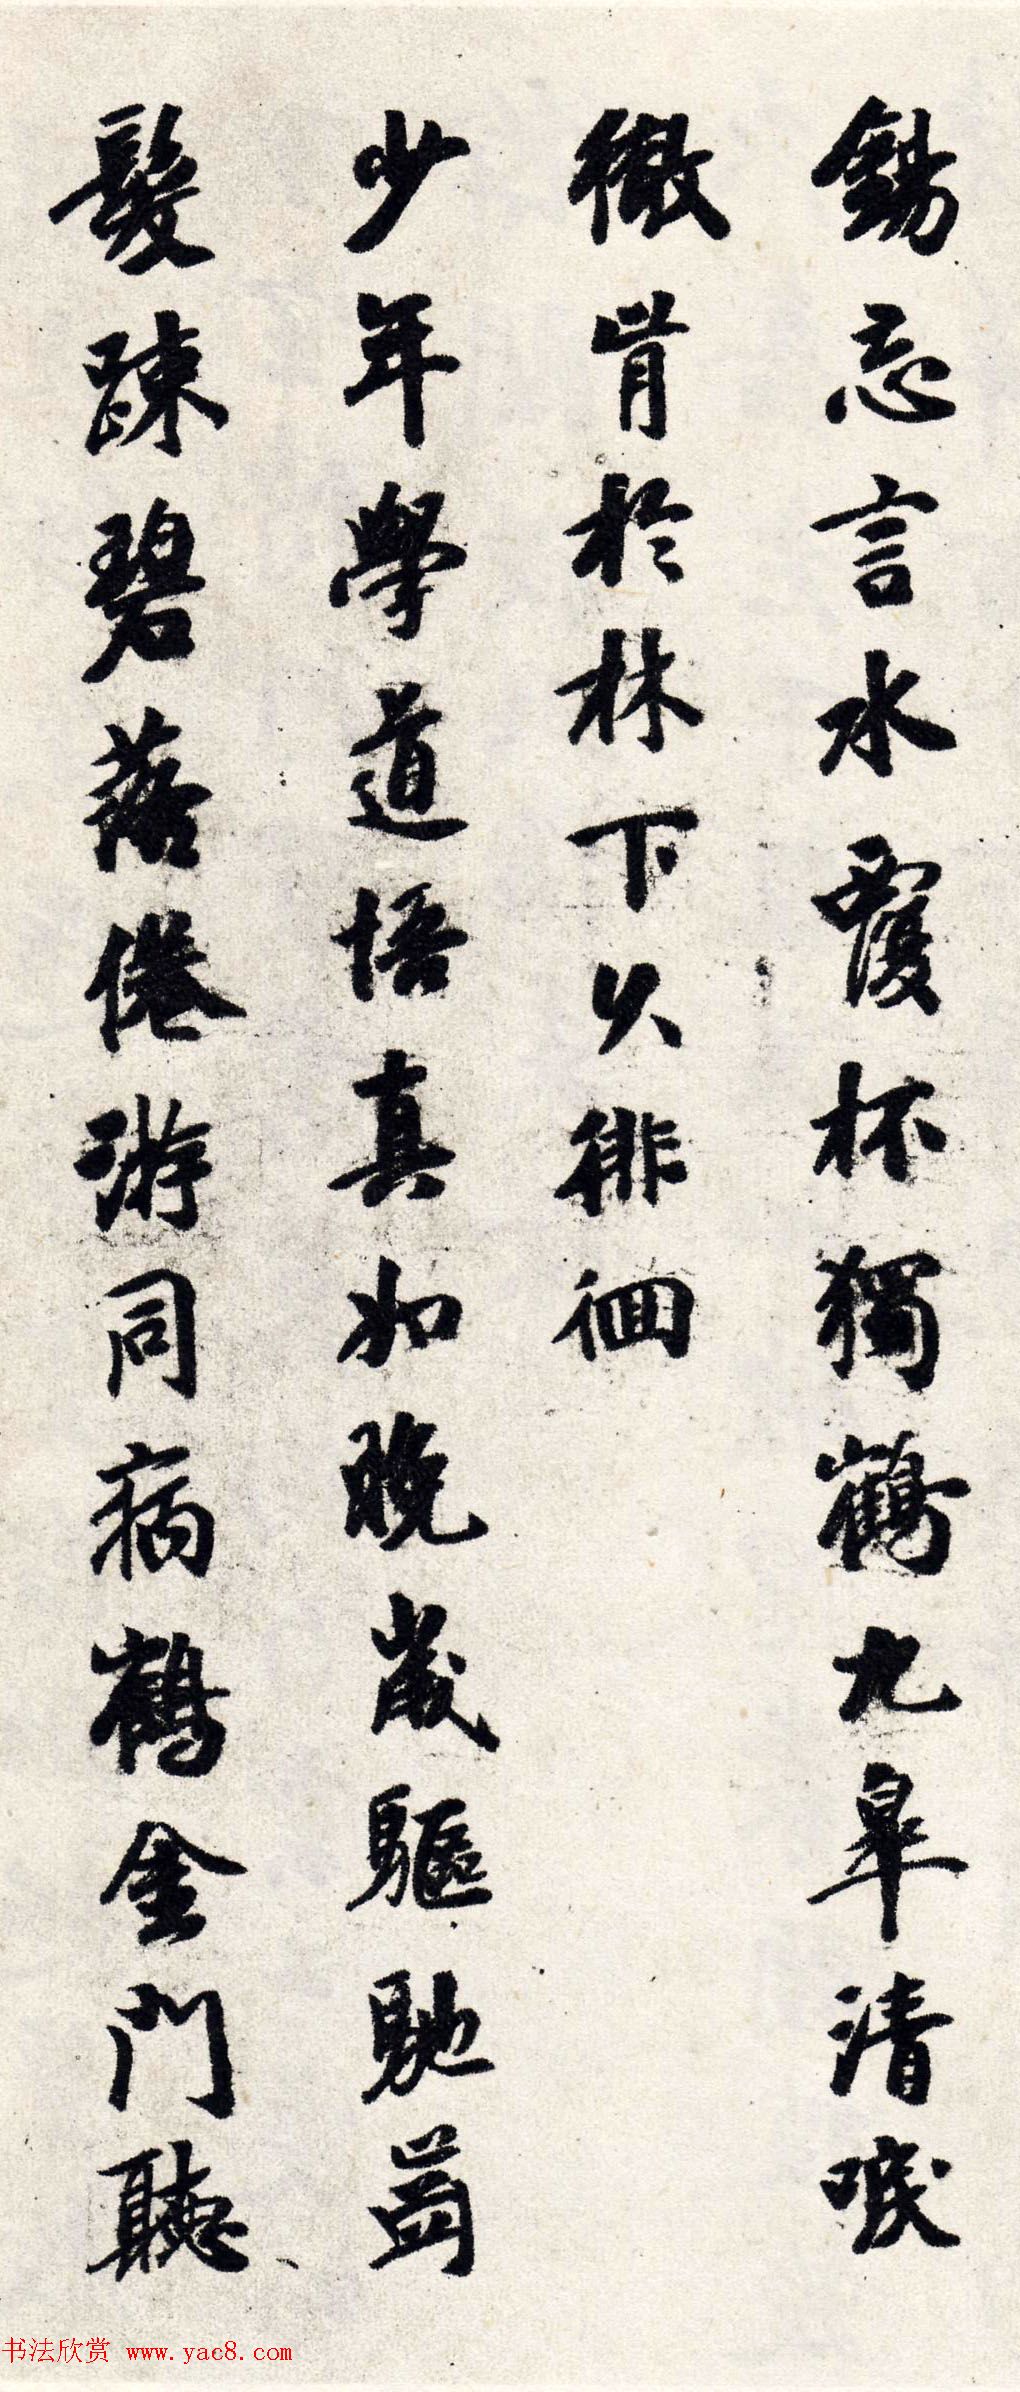 錫忘言水覆杯獨鶴九皋清唳
徹肯於林下久徘徊
少年學道悟真如晚歲驅馳齒
髮疎碧落倦游同病鶴金門聽
书法欣赏 www.yac8.com